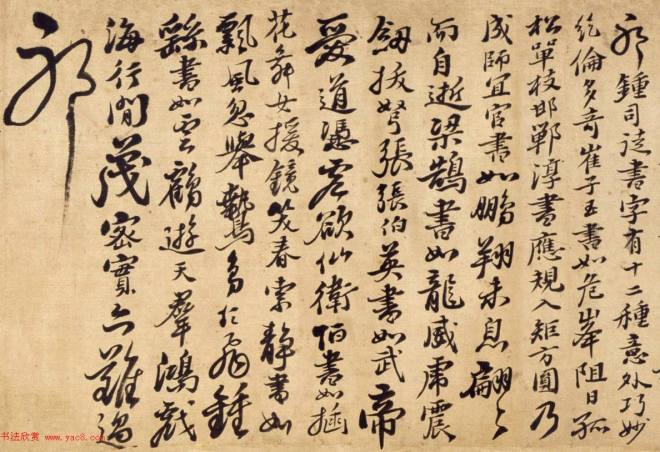 耶鍾司徒書字有十二種意外巧妙
絶倫多奇崔子玉書如危峯阻日孤
松單枝邯鄲淳書應規入矩方圓乃
成師宜官書如鵬翔未息翩〻
而自逝梁鵠書如龍威虎震
劒拔弩張張伯英書如武帝
愛道憑虛欲仙衛恒書如插
花舞女援鏡笑春索靜書如
飄風忽舉鷙鳥於飛鍾
繇書如雲鶴遊天羣鴻戲
海行間茂密實亦難過
耶
书法欣赏 www.yac8.com